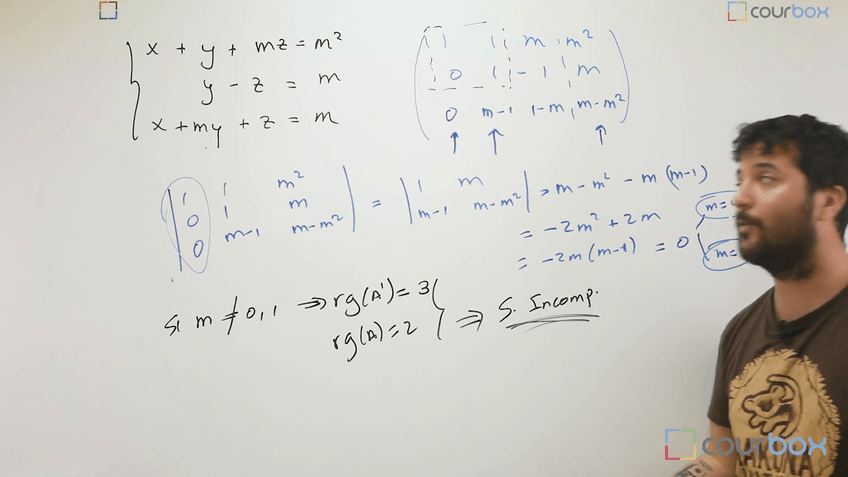 courbox
x + y + mz = m²
y - z = m
x + my + z = m
1 1 m m²
0 1 -1 m
0 m-1 1-m m-m²
| 1 1 m² |
| 0 1 m |
| 0 m-1 m-m² |
= | 1 m |
| m-1 m-m² |
= m - m² - m (m-1)
= -2m² + 2m
= -2m (m-1) = 0
m=
m=
Si m ≠ 0, 1 ⇒ rg(A') = 3
rg(A) = 2
⇒ S. Incomp.
HAKUNA
courbox